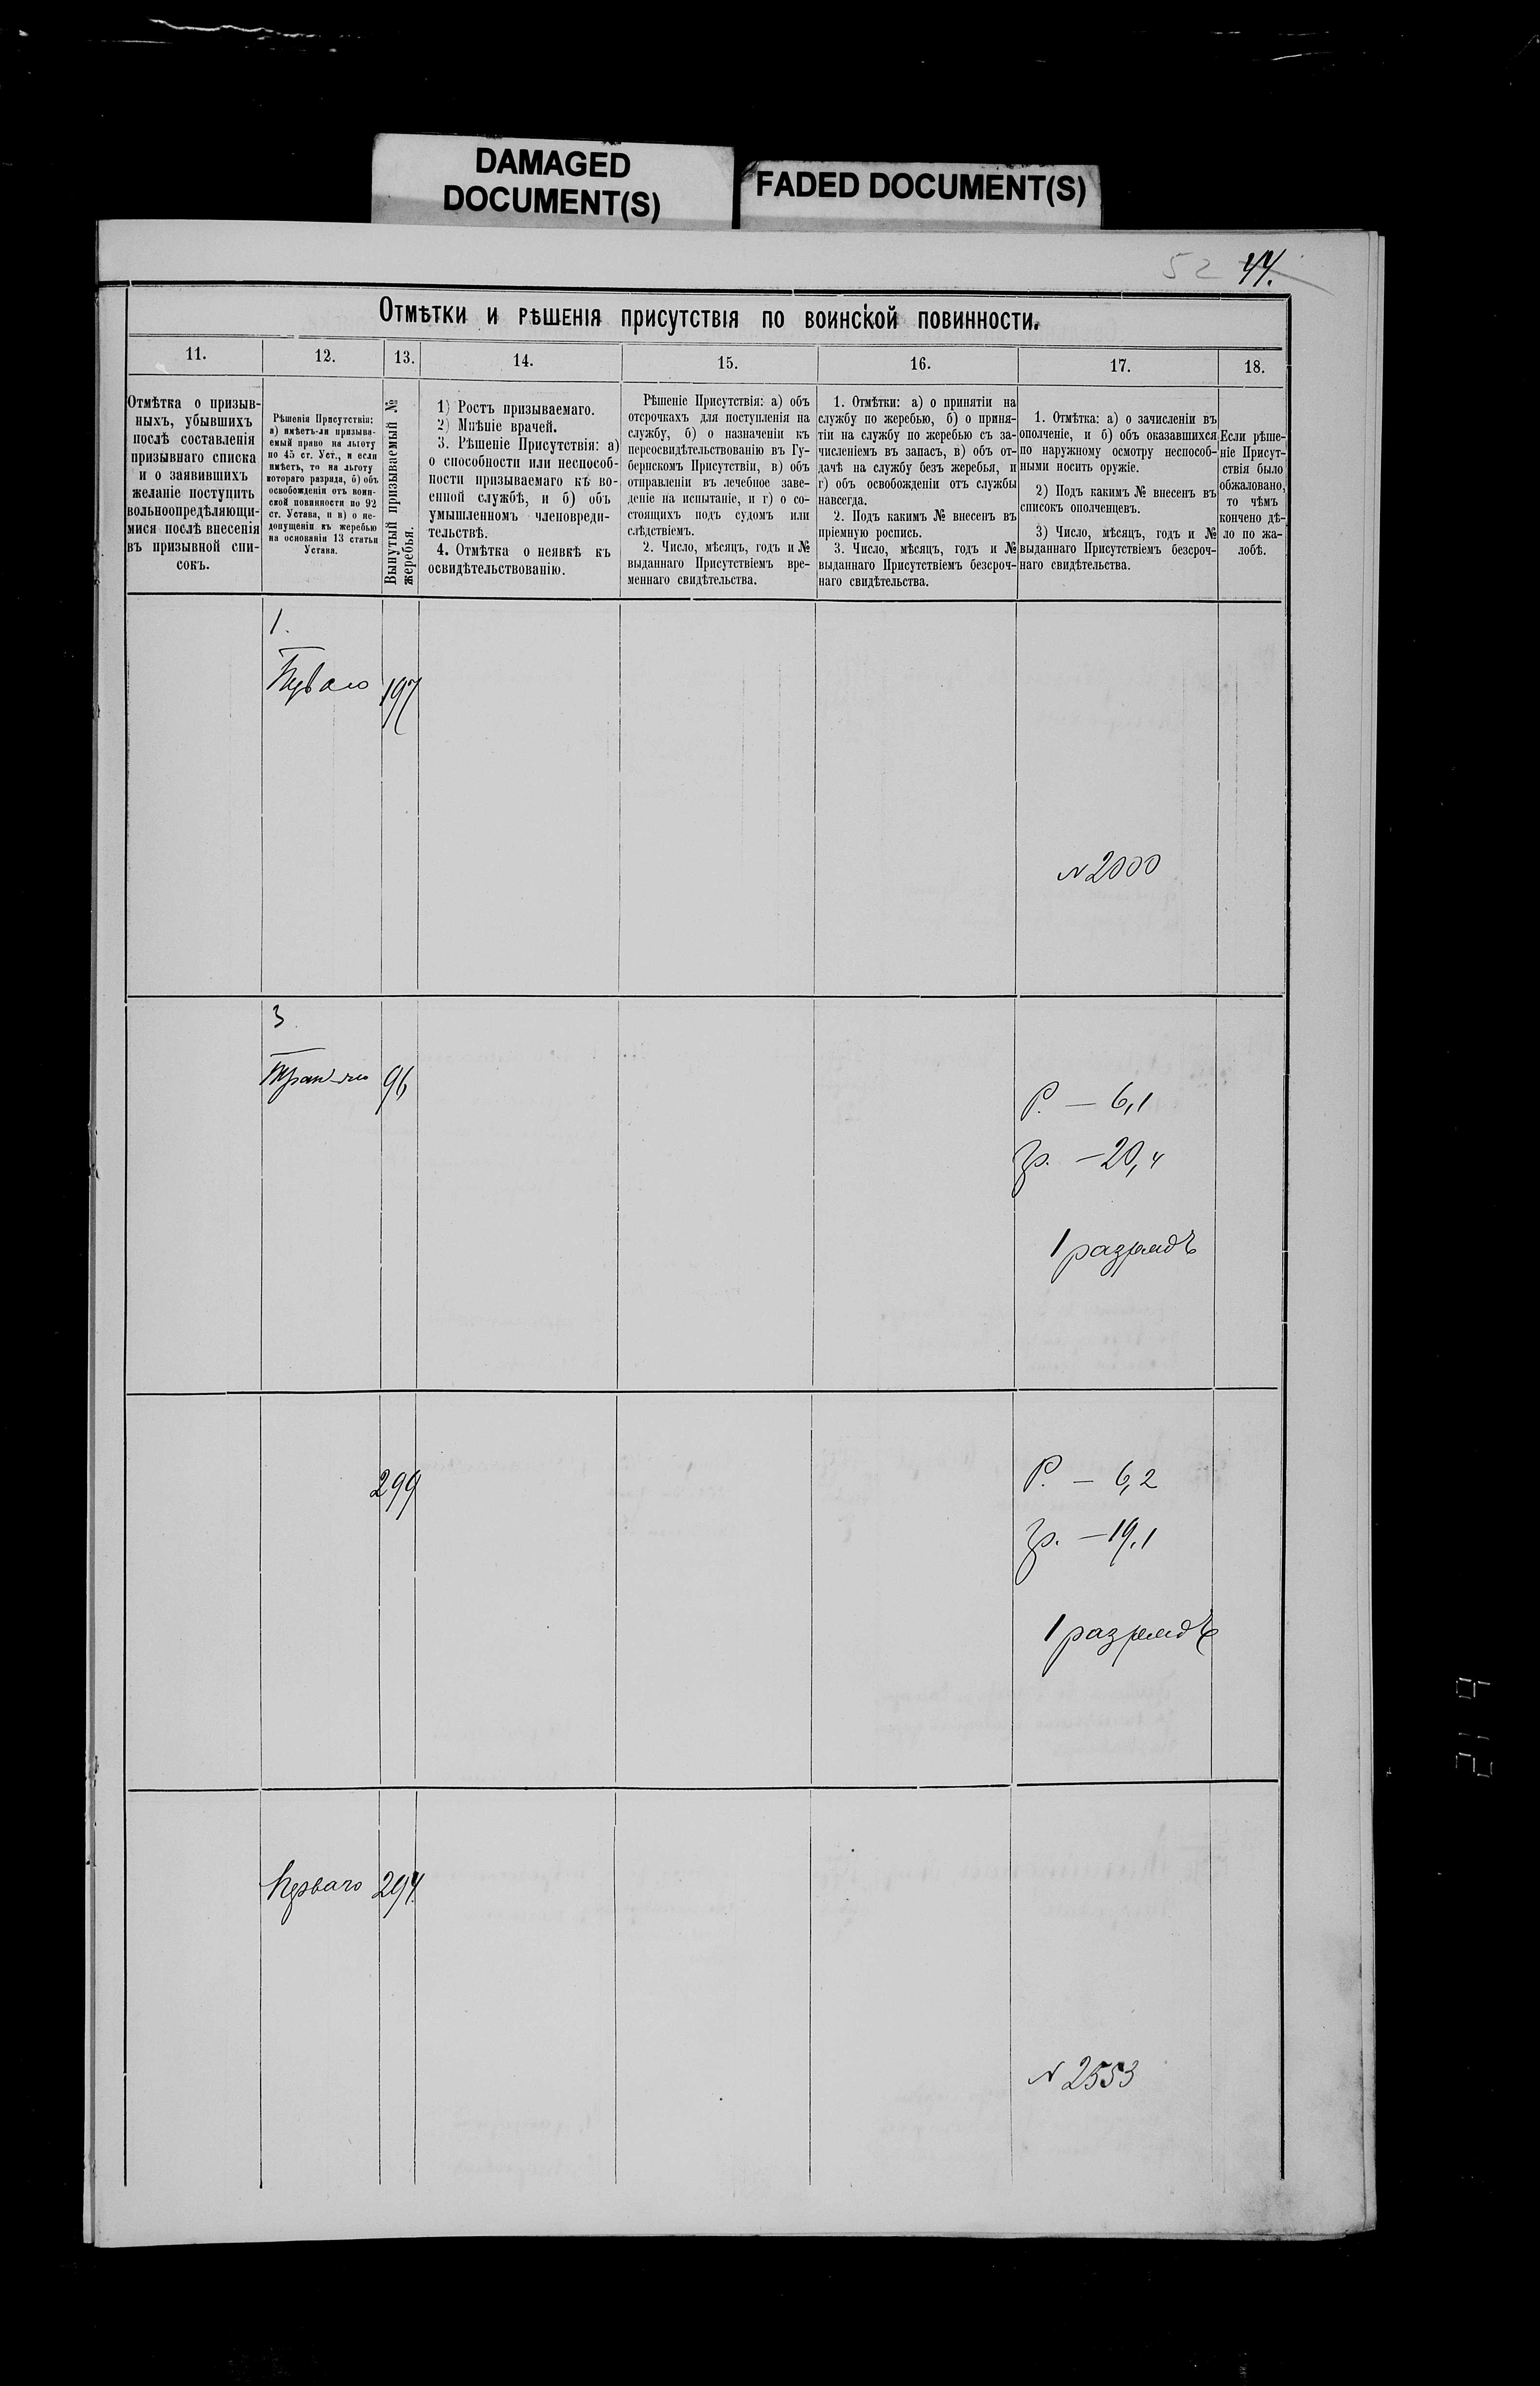 DAMAGED
DOCUMENT(S)
FADED DOCUMENT(S)
52 44.
Отмѣтки и рѣшенія присутствія по воинской повинности.
11.
12.
13.
14.
15.
16.
17.
18.
Отмѣтка о призыв-
ныхъ, убывшихъ
послѣ составленія
призывнаго списка
и о заявившихъ
желаніе поступить
вольноопредѣляющи-
мися послѣ внесенія
въ призывной спи-
сокъ.
Рѣшенія Присутствія:
а) имѣетъ-ли призыва-
емый право на льготу
по 45 ст. Уст., и если
имѣетъ, то на льготу
котораго разряда, б) объ
освобожденіи отъ воин-
ской повинности по 92
ст. Устава, и в) о не-
допущеніи къ жеребью
на основаніи 13 статьи
Устава.
Вынутый призываемый №
жеребья.
1) Ростъ призываемаго.
2) Мнѣніе врачей.
3. Рѣшеніе Присутствія: а)
о способности или неспособ-
ности призываемаго къ во-
енной службѣ, и б) объ
умышленномъ членовреди-
тельствѣ.
4. Отмѣтка о неявкѣ къ
освидѣтельствованію.
Рѣшеніе Присутствія: а) объ
отсрочкахъ для поступленія на
службу, б) о назначеніи къ
переосвидѣтельствованію въ Гу-
бернскомъ Присутствіи, в) объ
отправленіи въ лечебное заве-
деніе на испытаніе, и г) о со-
стоящихъ подъ судомъ или
слѣдствіемъ.
2. Число, мѣсяцъ, годъ и №
выданнаго Присутствіемъ вре-
меннаго свидѣтельства.
1. Отмѣтки: а) о принятіи на
службу по жеребью, б) о приня-
тіи на службу по жеребью съ за-
численіемъ въ запасъ, в) объ от-
дачѣ на службу безъ жеребья, и
г) объ освобожденіи отъ службы
навсегда.
2. Подъ какимъ № внесенъ въ
пріемную роспись.
3. Число, мѣсяцъ, годъ и №
выданнаго Присутствіемъ безсроч-
наго свидѣтельства.
1. Отмѣтка: а) о зачисленіи въ
ополченіе, и б) объ оказавшихся
по наружному осмотру неспособ-
ными носить оружіе.
2) Подъ какимъ № внесенъ въ
списокъ ополченцевъ.
3) Число, мѣсяцъ, годъ и №
выданнаго Присутствіемъ безсроч-
наго свидѣтельства.
Если рѣше-
ніе Присут-
ствія было
обжаловано,
то чѣмъ
кончено дѣ-
ло по жа-
лобѣ.
1.
197
N 2000
3
96
Р. — 6,1
гр. — 20,4
1 разрядъ
299
Р. — 6,2
гр. — 19,1
1 разрядъ
Перваго 294
N 2553
219